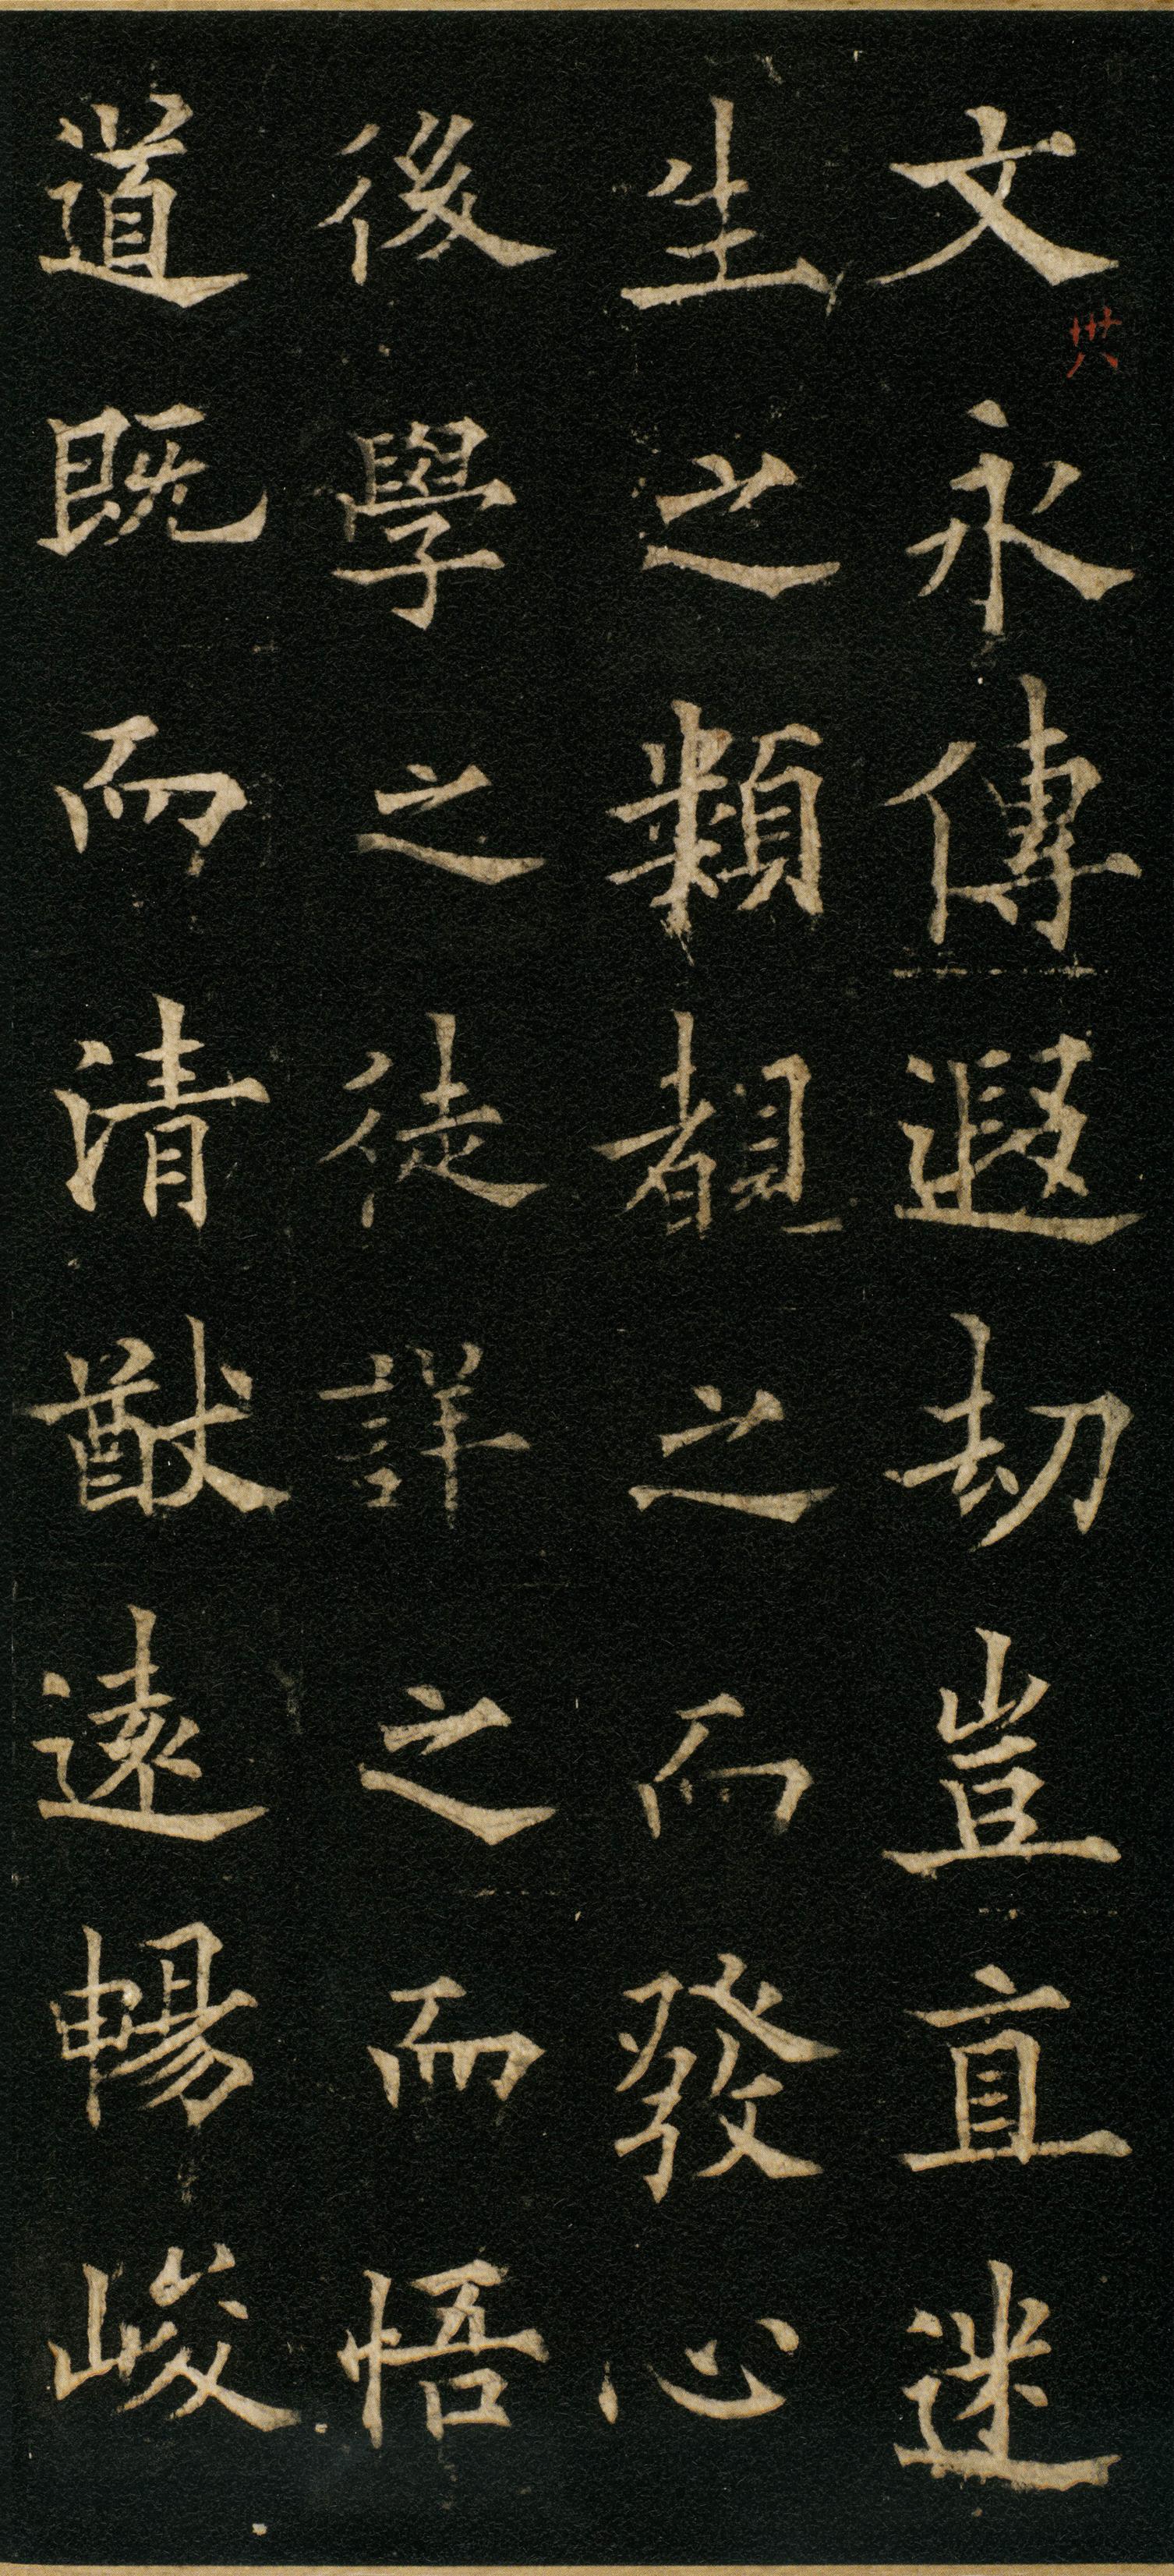 文永傳遐劫豈直迷
生之類覩之而發心
後學之徒詳之而悟
道既而清猷遠暢峻